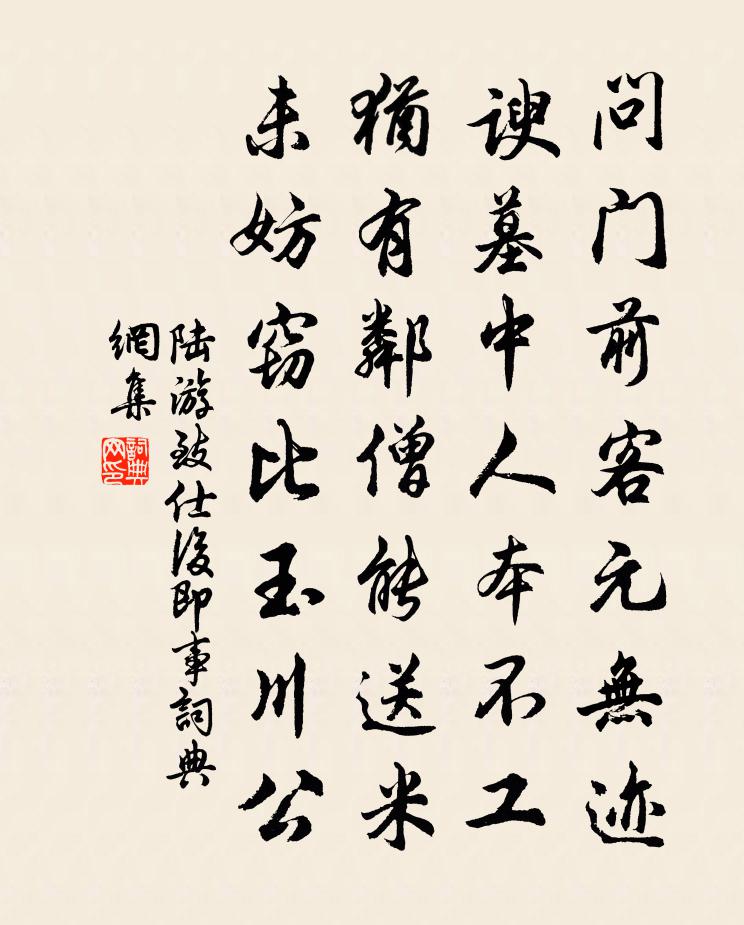 問门前客元無迹
谀墓中人本不工
猶有鄰僧能送米
未妨窃比玉川公
陆游致仕後即事詞典
網集
詞典
网印